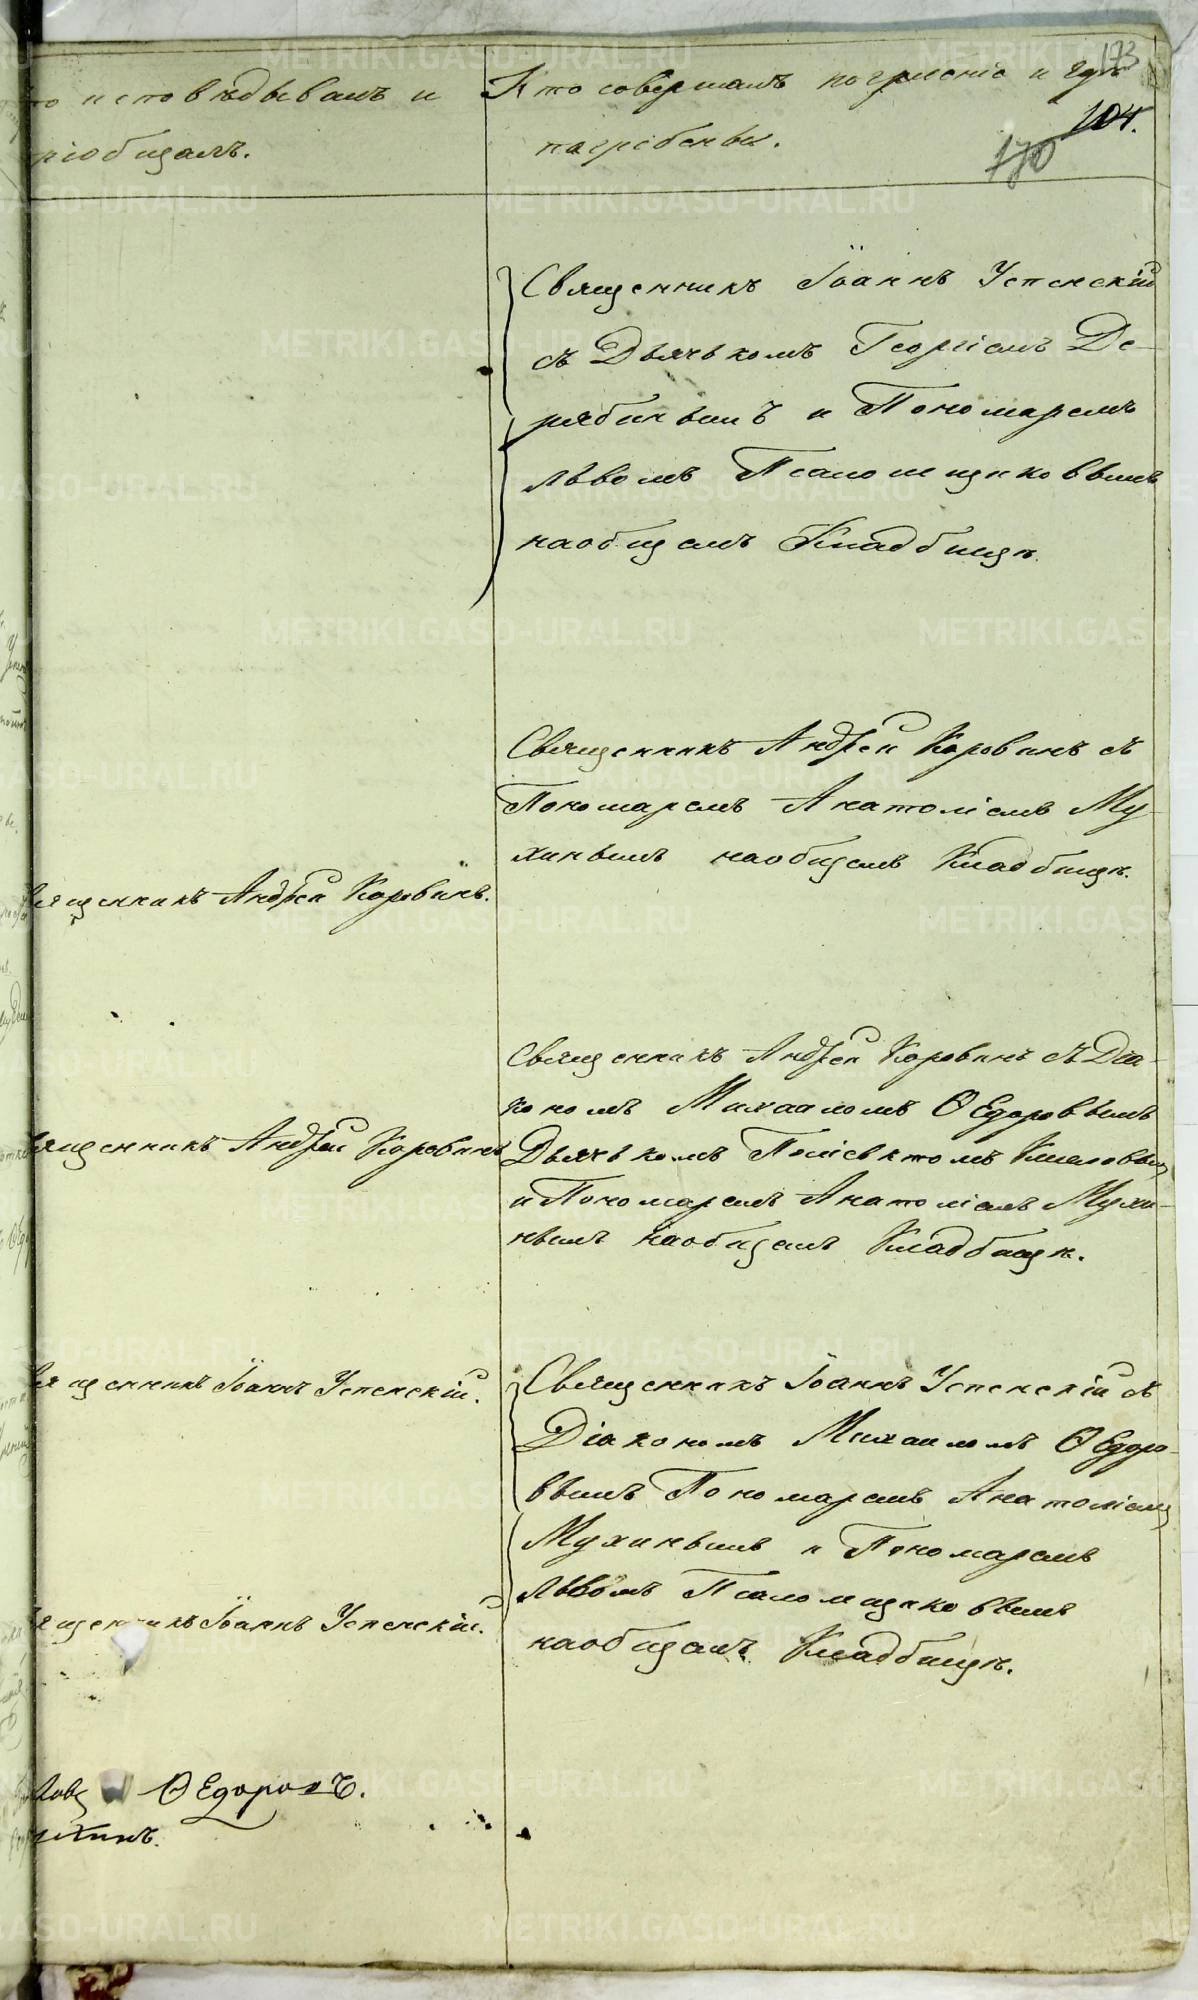 173
то исповѣдывалъ и
ріобщалъ.
Кто совершалъ погребеніе и гдѣ
погребены.
104.
170
Священникъ Іоаннъ Успенскій
съ Дьячькомъ Георгіемъ Де-
рябинымъ и Пономаремъ
Львомъ Псаломщиковымъ
наобщемъ Кладбищѣ.
Священникъ Андрей Коровинъ съ
Пономаремъ Анатоліемъ Му-
хинымъ наобщемъ Кладбищѣ.
вященникъ Андрей Коровинъ.
Священникъ Андрей Коровинъ съ Діа-
кономъ Михаиломъ Ѳедоровымъ
Дьячькомъ
и Пономаремъ Анатоліемъ Мухи-
нымъ наобщемъ Кладбищѣ.
вященникъ Андрей Коровинъ
вященникъ Іоаннъ Успенскій.
Священникъ Іоаннъ Успенскій съ
Діакономъ Михаиломъ Ѳедоро-
вымъ Пономаремъ Анатоліемъ
Мухинымъ и Пономаремъ
Львомъ Псаломщиковымъ
наобщемъ Кладбищѣ.
Іоаннъ Успенскій.
Ѳедоровъ.
METRIKI.GASO-URAL.RU